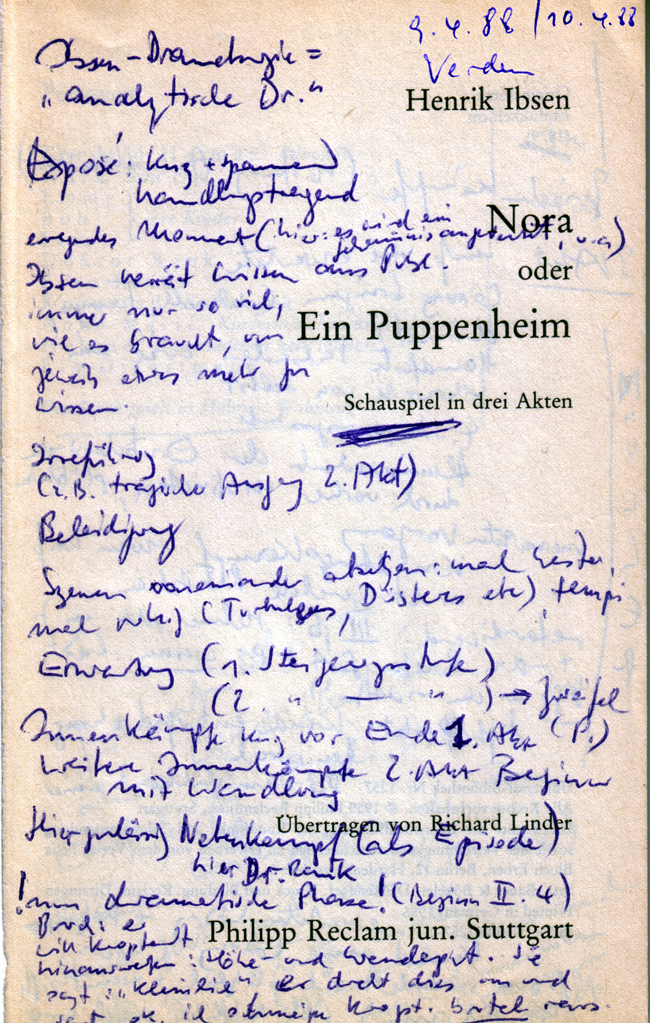 9.4.88 / 10.4.88
Verden
Ibsen-Dramaturgie =
"analytische Dr."
Henrik Ibsen
Exposé: kurz + spannend
handlungstragend
Nora
erregendes Moment (hier: es wird ein
Geheimnis angedeutet, u.a.)
oder
Ibsen verrät wissen dem Publ.
immer nur so viel,
Ein Puppenheim
wie es braucht, um
jeweils etwas mehr zu
wissen.
Schauspiel in drei Akten
Irreführung
(z.B. tragischer Ausgang 2. Akt)
Beleidigung
Szenen voneinander absetzen: mal heiter,
mal ruhig (Turbulentes, Düsteres etc)
Erwartung (1. Steigerungsstufe)
(2. " — " ) → Zweifel
Innenkämpfe kurz vor Ende 1. Akt (P.)
weitere Innenkämpfe 2. Akt Beginn
mit Wandlung
Übertragen von Richard Linder
Hier zulässig Nebenkampf (als Episode)
hier Dr. Rank
! nun dramatische Phase. (Beginn II. 4)
Philipp Reclam jun. Stuttgart
will Krogstadt
hinauswerfen: Höhe- und Wendepkt. Sie
sagt: "kleinlich" er dreht dies um und
sagt ok, ich schmeiße Krogst. raus.